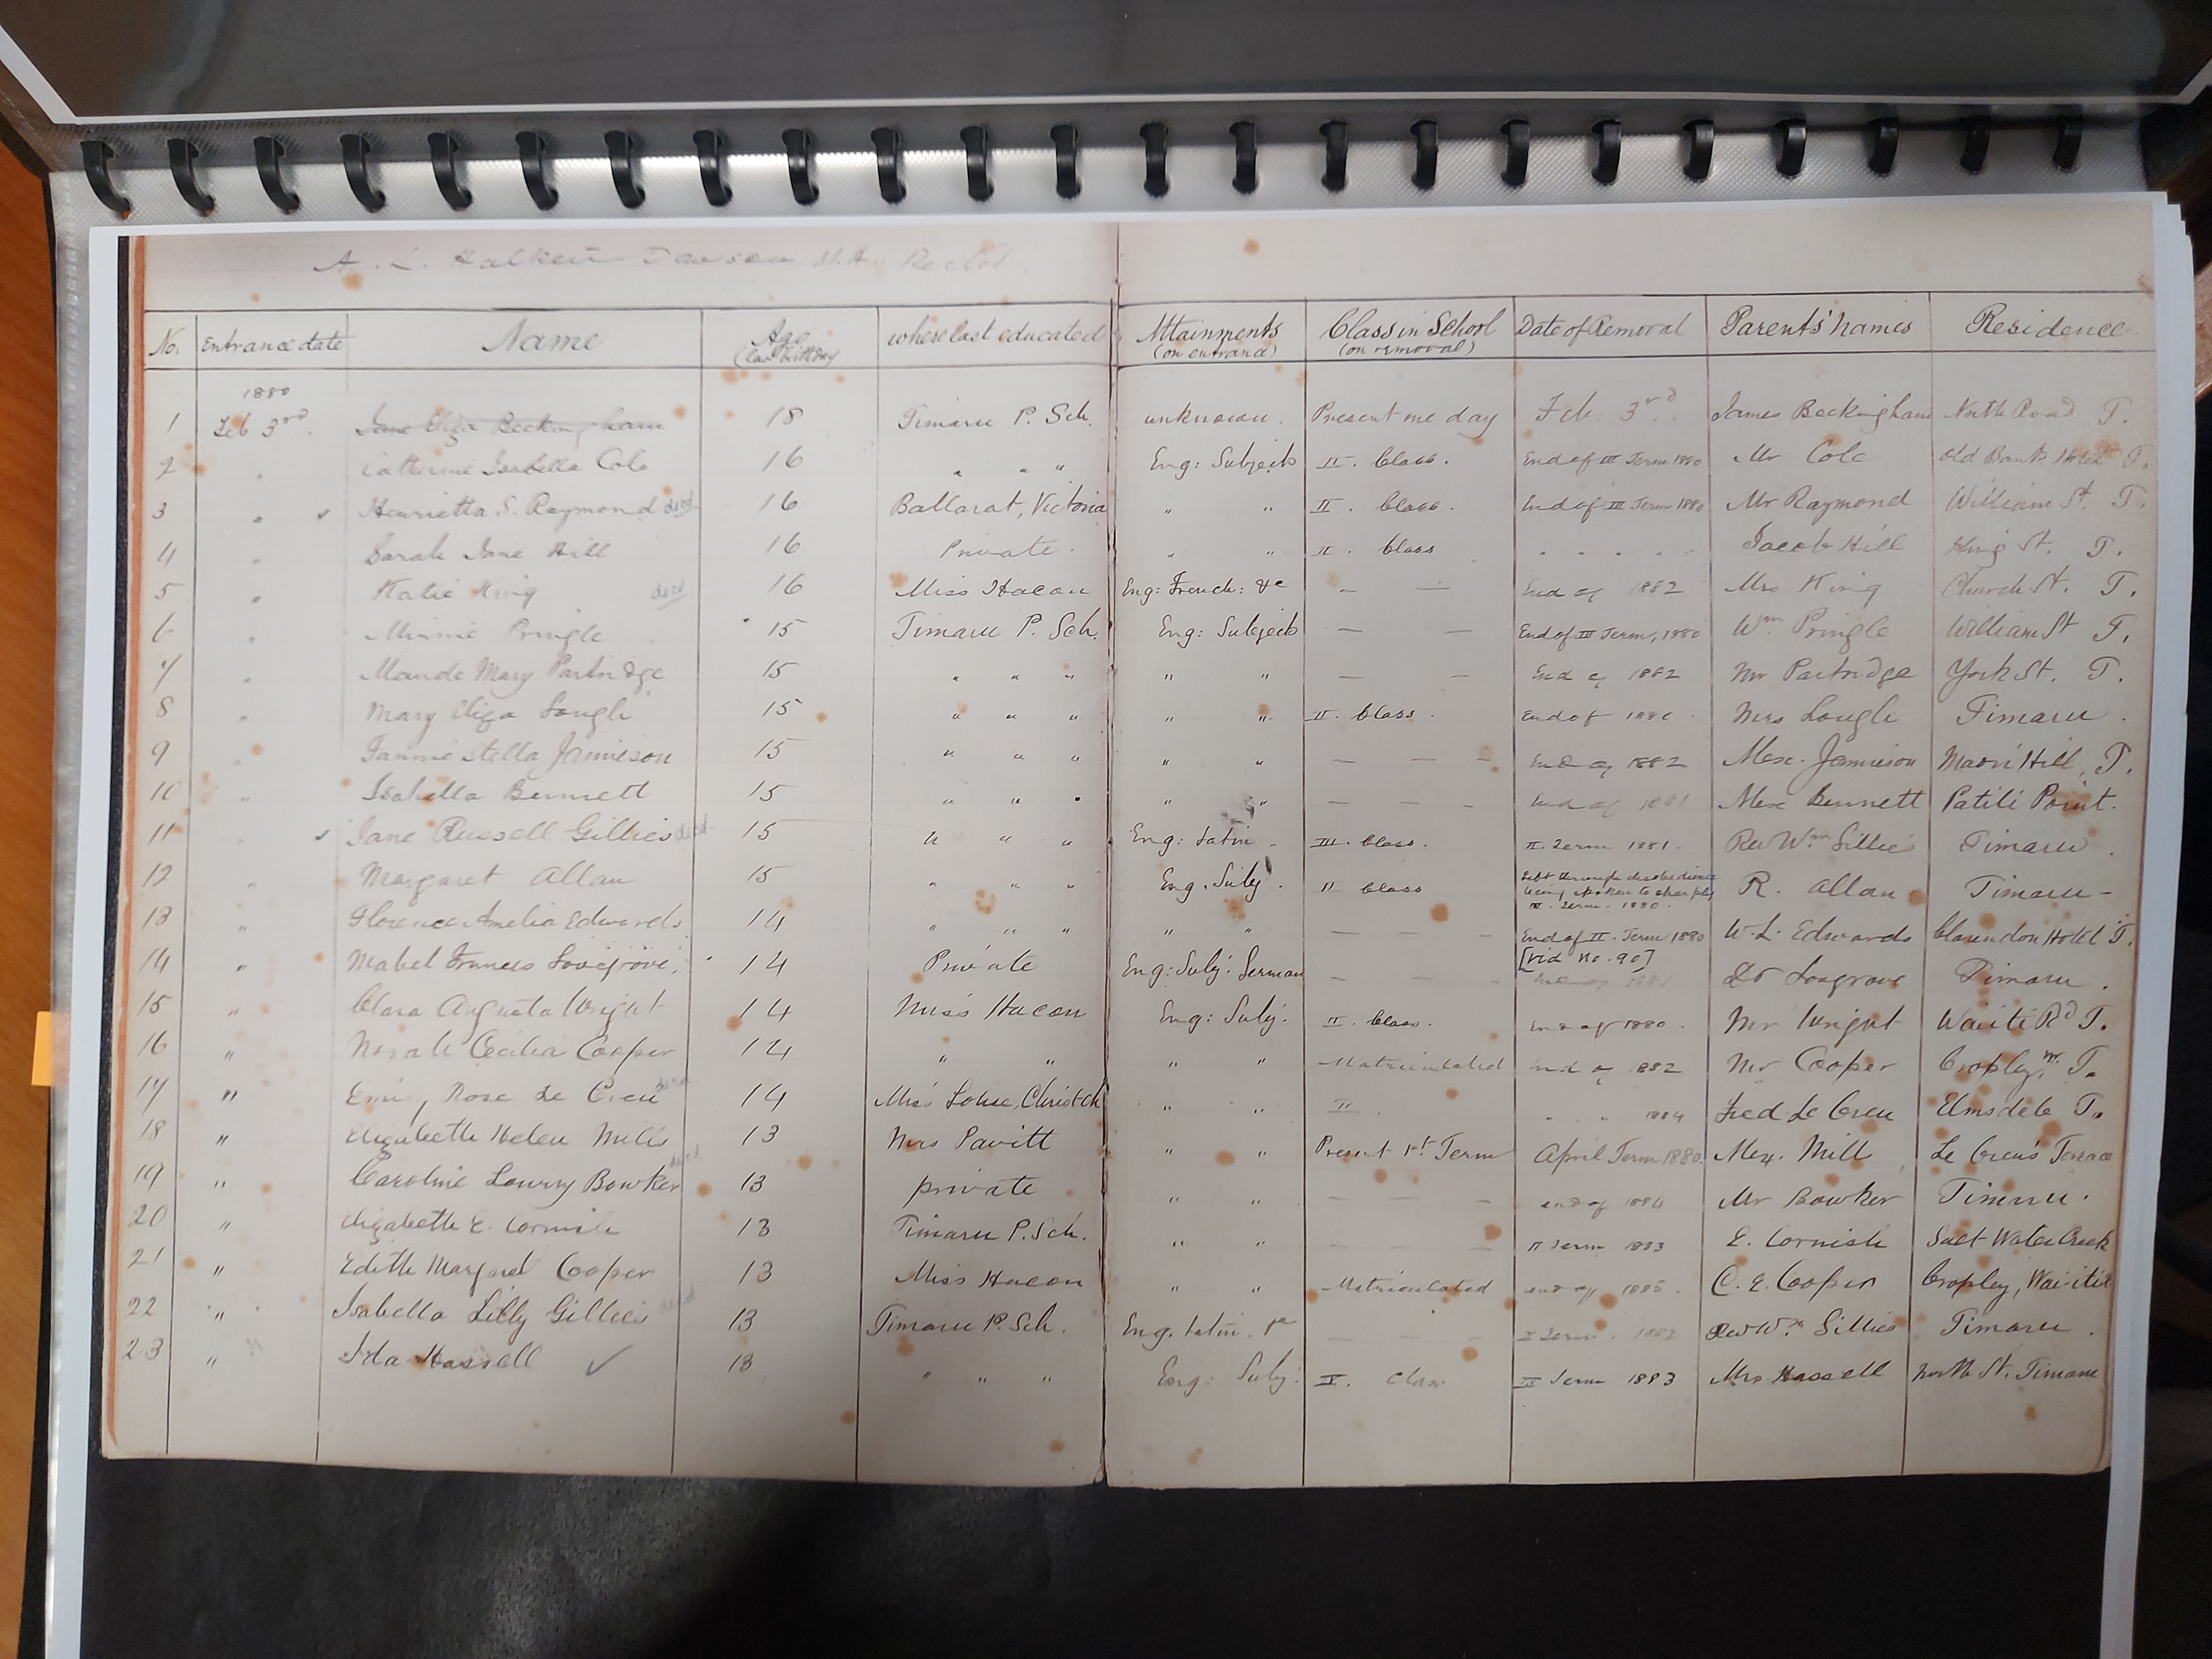 A. L. Halkett Dawson M.A. Rector.
No. Entrance date Name Age (last birthday) where last educated Attainments (on entrance) Class in School (on removal) Date of Removal Parents' names Residence
1880
1 Feb 3rd. Jane Eliza Beckingham 18 Timaru P. Sch. unknown. Present one day Feb. 3rd James Beckingham North Road T.
2 " Catherine Isabella Cole 16 " " " Eng: Subjects II. Class. End of III Term 1880 Mr Cole Old Bank Hotel T.
3 " ✓ Henrietta S. Raymond decd 16 Ballarat, Victoria " " II. Class. End of III Term 1880 Mr Raymond William St. T.
4 " Sarah Jane Hill 16 Private. " " II. Class " " " " " Jacob Hill King St. T.
5 " Katie King decd 16 Miss Hacon Eng: French: &c — — End of 1882 Mrs King Church St. T.
6 " Minnie Pringle 15 Timaru P. Sch. Eng: Subjects — — End of III Term, 1880 Wm Pringle William St T.
7 " Maude Mary Partridge 15 " " " " " — — End of 1882 Mr Partridge York St. T.
8 " Mary Eliza Lough 15 " " " " " II. Class. End of 1880 Mrs Lough Timaru.
9 " Fannie Stella Jamieson 15 " " " " " — — — End of 1882 Alex. Jamieson Maori Hill, T.
10 " Isabella Bennett 15 " " " " " — — — End of 1881 Alex Bennett Patiti Point.
11 " ✓ Jane Russell Gillies decd. 15 " " " Eng: Latin. III. Class. II. Term 1881. Rev Wm. Gillies Timaru.
12 " Margaret Allan 15 " " " Eng. Subj. II Class Left through disobedience being spoken to sharply III. Term. 1880. R. Allan Timaru—
13 " Florence Amelia Edwards. 14 " " " " " — — — End of II. Term 1880 W. L. Edwards Clarendon Hotel T.
[vid No. 90]
14 " Mabel Frances Lovegrove. 14 Private Eng: Subj: German — — — End of 1881 Dr Lovegrove Timaru.
15 " Clara Augusta Wright 14 Miss Hacon Eng: Subj: II. Class. End of 1880. Mr Wright Waiiti Rd T.
16 " Norah Cecilia Cooper 14 " " " " Matriculated End of 1882 Mr Cooper Cropley, T.
17 " Emily Rose Le Cren decd 14 Miss Lohse, Christch " " II. " " 1884 Fred Le Cren Elmsdale T.
18 " Elizabeth Helen Mills 13 Mrs Pavitt " " Present 1st Term April Term 1880. Alex. Mill Le Cren's Terrace
19 " Caroline Lowry Bowker decd 13 private " " — — — end of 1884 Mr Bowker Timaru.
20 " Elizabeth E. Cornish 13 Timaru P. Sch. " " — — — II Term 1883 E. Cornish Salt Water Creek
21 " Edith Margaret Cooper 13 Miss Hacon " " Matriculated end of 1885. C. E. Cooper Cropley, Wai-iti Rd
22 " Isabella Lilly Gillies decd 13 Timaru P. Sch. Eng. Latin. &c — — — I Term. 1882 Rev Wm. Gillies Timaru.
23 " Ida Hassell ✓ 13 " " " Eng: Subj. V. Class III Term 1883 Mrs Hassell North St. Timaru